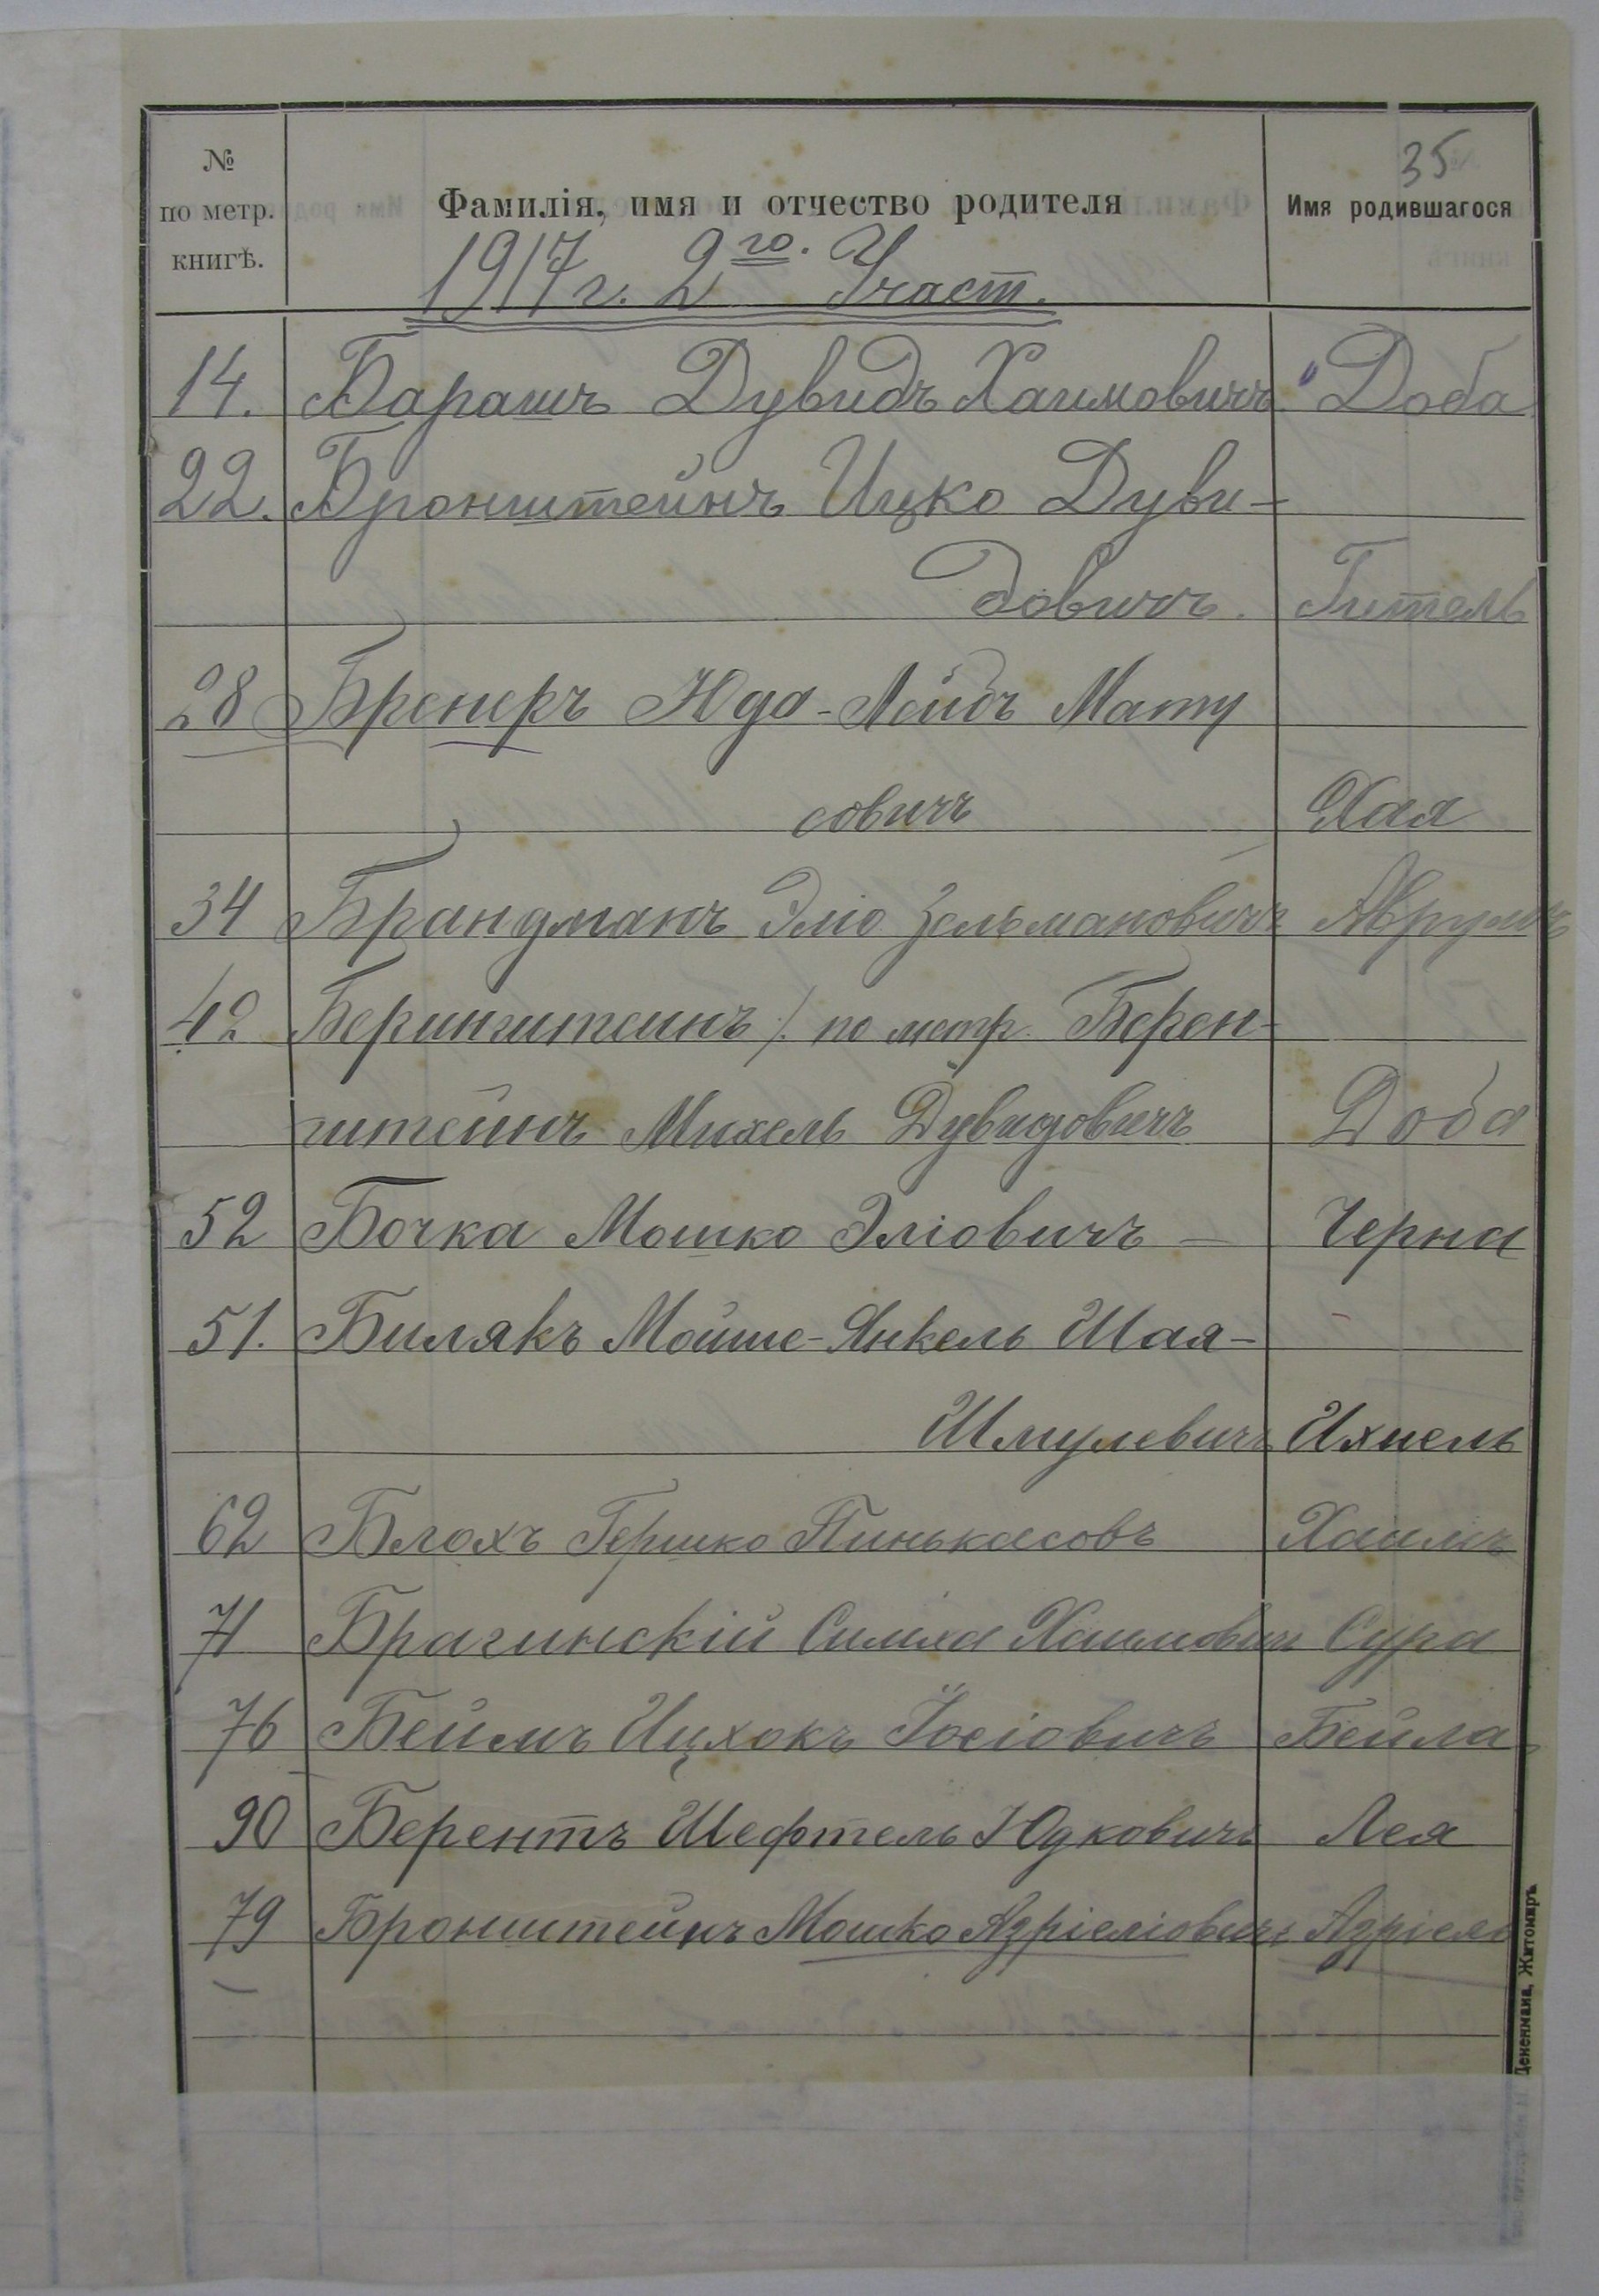 35
№ по метр. книгѣ.
Фамилія, имя и отчество родителя
Имя родившагося
1917 г. 2го. Участ.
14. Барашъ Дувидъ Хаимовичъ Доба
22. Бронштейнъ Ицко Дуви-
довичъ. Гитель
28 Бренеръ Юдо-Лейбъ Мату
совичъ Хая
34 Брандманъ Эліо Зельмановичъ Аврумъ
42 Беринштеинъ /. по метр. Берен-
штейнъ Михель Дувидовичъ Доба
52 Бочка Мошко Эліовичъ – Черна
51. Билякъ Мойше-Янкель Шая-
Шмулевичъ Ихиель
62 Блохъ Гершко Пинькасовъ Хаимъ
71 Брагинскій Симха Хаимович Сура
76 Беймъ Ицхокъ Іосіовичъ Бейла
90 Берентъ Шефтель Юдковичъ Лея
79 Бронштейнъ Мошко Азріеліовичъ Азріель
Дененмана, Житомиръ